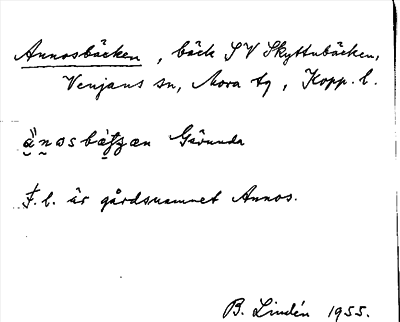 Annosbäcken, bäck SV Skyttubäcken,
Venjans sn, Mora tg, Kopp. l.
Gävunda
F. l. är gårdsnamnet Annos.
B. Lindén 1955.